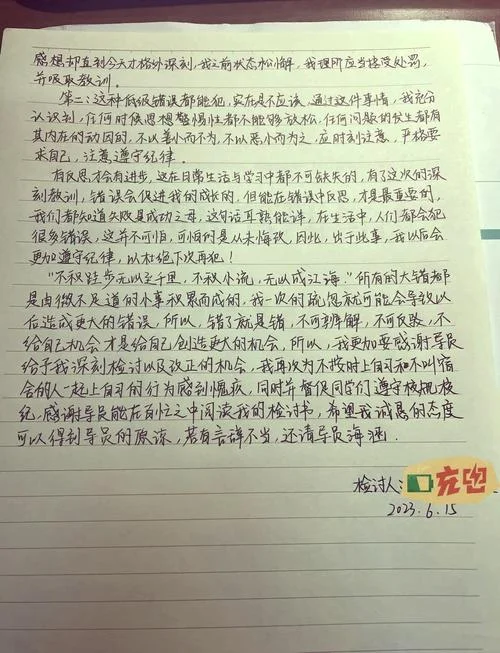 感想却直到今天才格外深刻，我之前状态松懈，我理所应当接受处罚，
并吸取教训。
第二：这种低级错误都能犯，实在是不应该，通过这件事情，我充分
认识到，任何时候思想警惕性都不能够放松，任何问题的发生都有
其内在的动因的，不以善小而不为，不以恶小而为之，应时刻注意，严格要
求自己，注意遵守纪律。
有反思才会有进步，这在日常生活与学习中都不可缺失的，有了这次的深
刻教训，错误会促进我的成长的，但能在错误中反思，才是最重要的，
我们都知道失败是成功之母，这句话耳熟能详，在生活中，人们都会犯
很多错误，这并不可怕，可怕的是从未悔改，因此，出于此事，我以后会
更加遵守纪律，以杜绝下次再犯！
"不积跬步无以至千里，不积小流，无以成江海。"所有的大错都
是由微不足道的小事积累而成的，我一次的疏忽就可能会导致以
后造成更大的错误，所以，错了就是错，不可辨解，不可反驳，不
给自己机会才是给自己创造更大的机会，所以，我更加要感谢导员
给予我深刻检讨以及改正的机会，我再次为不按时上自习和不叫宿
舍的人一起上自习的行为感到愧疚，同时并督促同学们遵守校规校
纪，感谢导员能在百忙之中阅读我的检讨书，希望我诚恳的态度
可以得到导员的原谅，若有言辞不当，还请导员海涵.
检讨人：充饱
2023.6.15